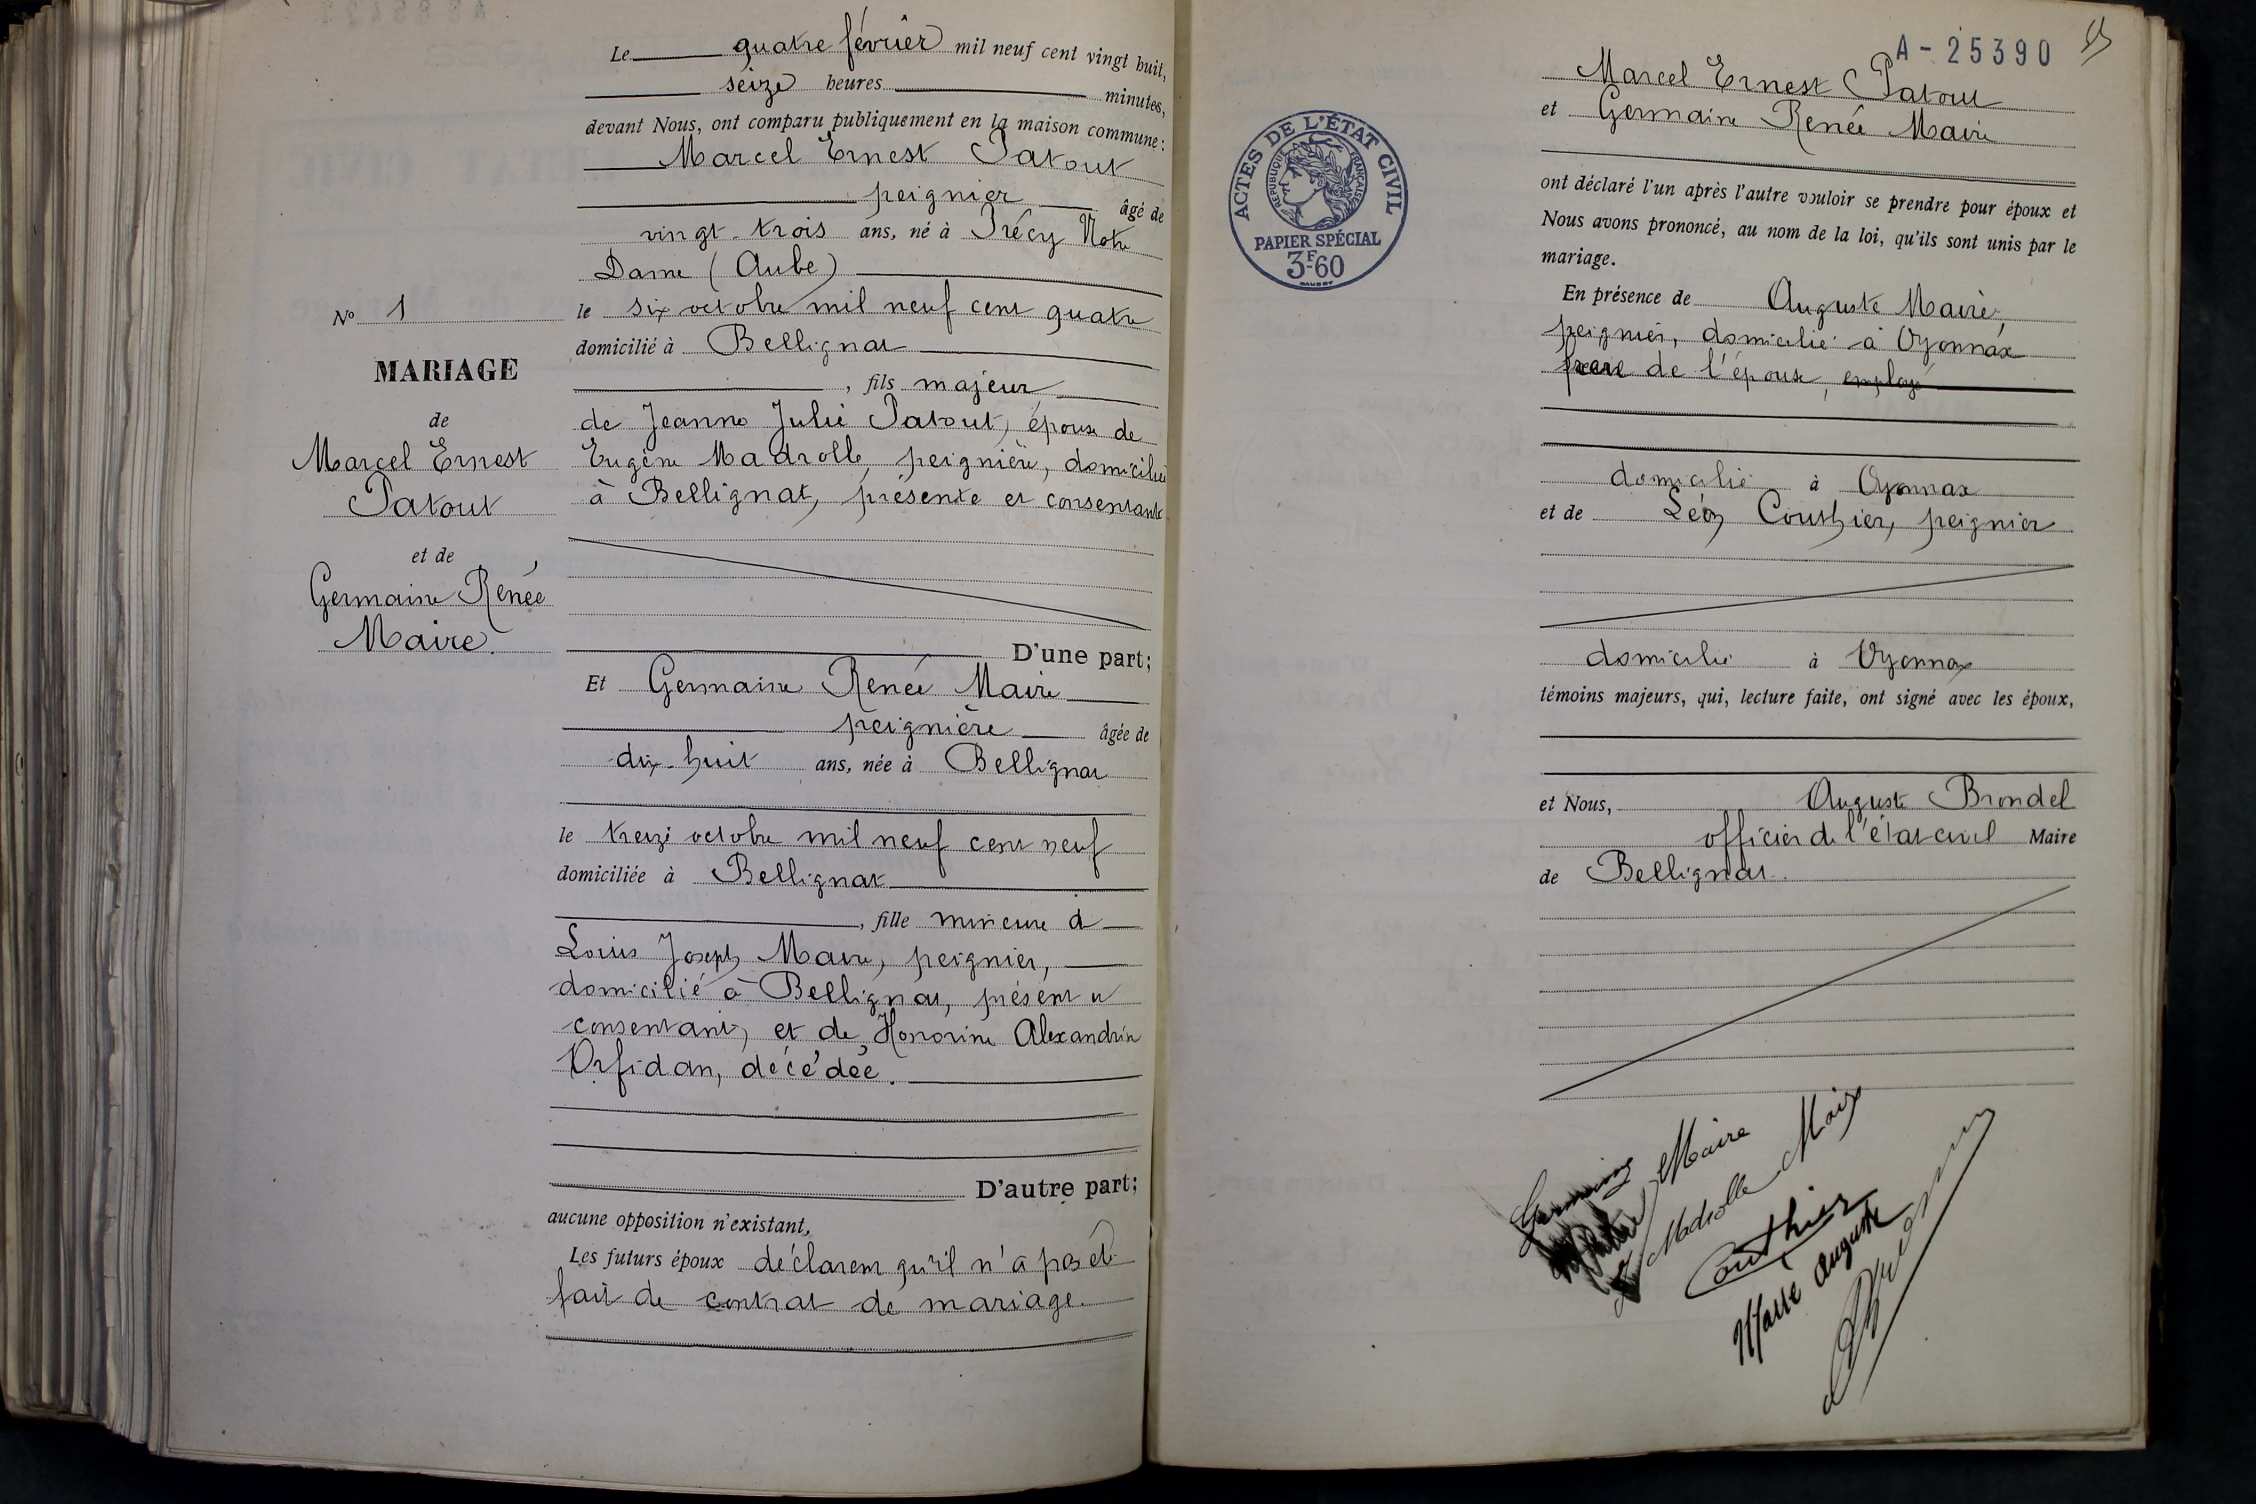 Le quatre février mil neuf cent vingt huit,
seize heures minutes,
devant Nous, ont comparu publiquement en la maison commune :
Marcel Ernest Patout
peignier âgé de
vingt-trois ans, né à Précy Notre
Dame (Aube)
le six octobre mil neuf cent quatre
domicilié à Bellignat
, fils majeur
de Jeanne Julie Patout, épouse de
Eugène Madrolle, peignière, domiciliée
à Bellignat, présente et consentante
D'une part;
Et Germaine Renée Maire
peignière âgée de
dix-huit ans, née à Bellignat
le treize octobre mil neuf cent neuf
domiciliée à Bellignat
, fille mineure d
Louis Joseph Maire, peignier,
domicilié à Bellignat, présent et
consentant, et de Honorine Alexandrine
Orfidan, décédée.
D'autre part;
aucune opposition n'existant,
Les futurs époux déclarent qu'il n'a pas été
fait de contrat de mariage.
N° 1
MARIAGE
de
Marcel Ernest
Patout
et de
Germaine Renée
Maire.
A-25390
Marcel Ernest Patout
et Germaine Renée Maire
ont déclaré l'un après l'autre vouloir se prendre pour époux et
Nous avons prononcé, au nom de la loi, qu'ils sont unis par le
mariage.
En présence de Auguste Maire,
peignier, domicilié à Oyonnax
frère de l'épouse, employé
domicilié à Oyonnax
et de Léon Couthier, peignier
domicilié à Oyonnax
témoins majeurs, qui, lecture faite, ont signé avec les époux,
et Nous, Auguste Brondel
officier de l'état civil Maire
de Bellignat.
ACTES DE L'ÉTAT CIVIL
RÉPUBLIQUE FRANÇAISE
PAPIER SPÉCIAL
3F-60
Germaine Maire
Madrolle Maire
Couthier
Maire Auguste